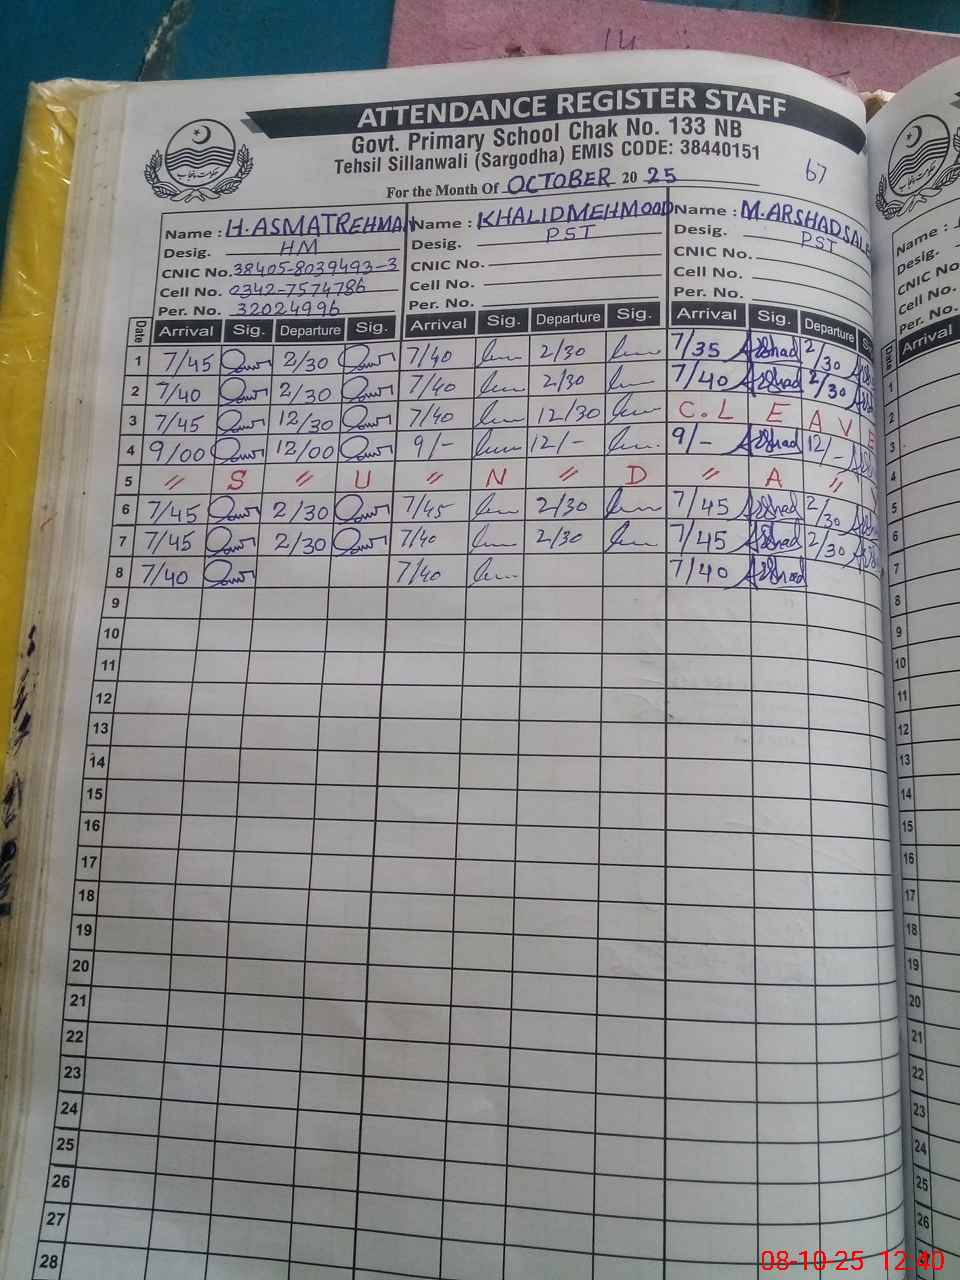 14
ATTENDANCE REGISTER STAFF
Govt. Primary School Chak No. 133 NB
Tehsil Sillanwali (Sargodha) EMIS CODE: 38440151
67
For the Month Of OCTOBER 20 25
Name : H.ASMATREHMAN Name : KHALIDMEHMOOD Name : M.ARSHADSAL
Desig. HM Desig. PST Desig. PST
CNIC No. 38405-8039493-3 CNIC No. CNIC No.
Cell No. 0342-7574786 Cell No. Cell No.
Per. No. 32024996 Per. No. Per. No.
Date Arrival Sig. Departure Sig. Arrival Sig. Departure Sig. Arrival Sig. Departure
1 7/45 2/30 7/40 2/30 7/35 Arshad 2/30
2 7/40 2/30 7/40 2/30 7/40 Arshad 2/30
3 7/45 12/30 7/40 12/30 C.L E A V E
4 9/00 12/00 9/- 12/- 9/- Arshad 12/-
5 " S " U " N " D " A "
6 7/45 2/30 7/45 2/30 7/45 Arshad 2/30
7 7/45 2/30 7/40 2/30 7/45 Arshad 2/30
8 7/40 7/40 7/40 Arshad
9
10
11
12
13
14
15
16
17
18
19
20
21
22
23
24
25
26
27
28
Name :
Desig.
CNIC No.
Cell No.
Per. No.
Date Arrival
1
2
3
4
5
6
7
8
9
10
11
12
13
14
15
16
17
18
19
20
21
22
23
24
25
26
08-10-25 12:40